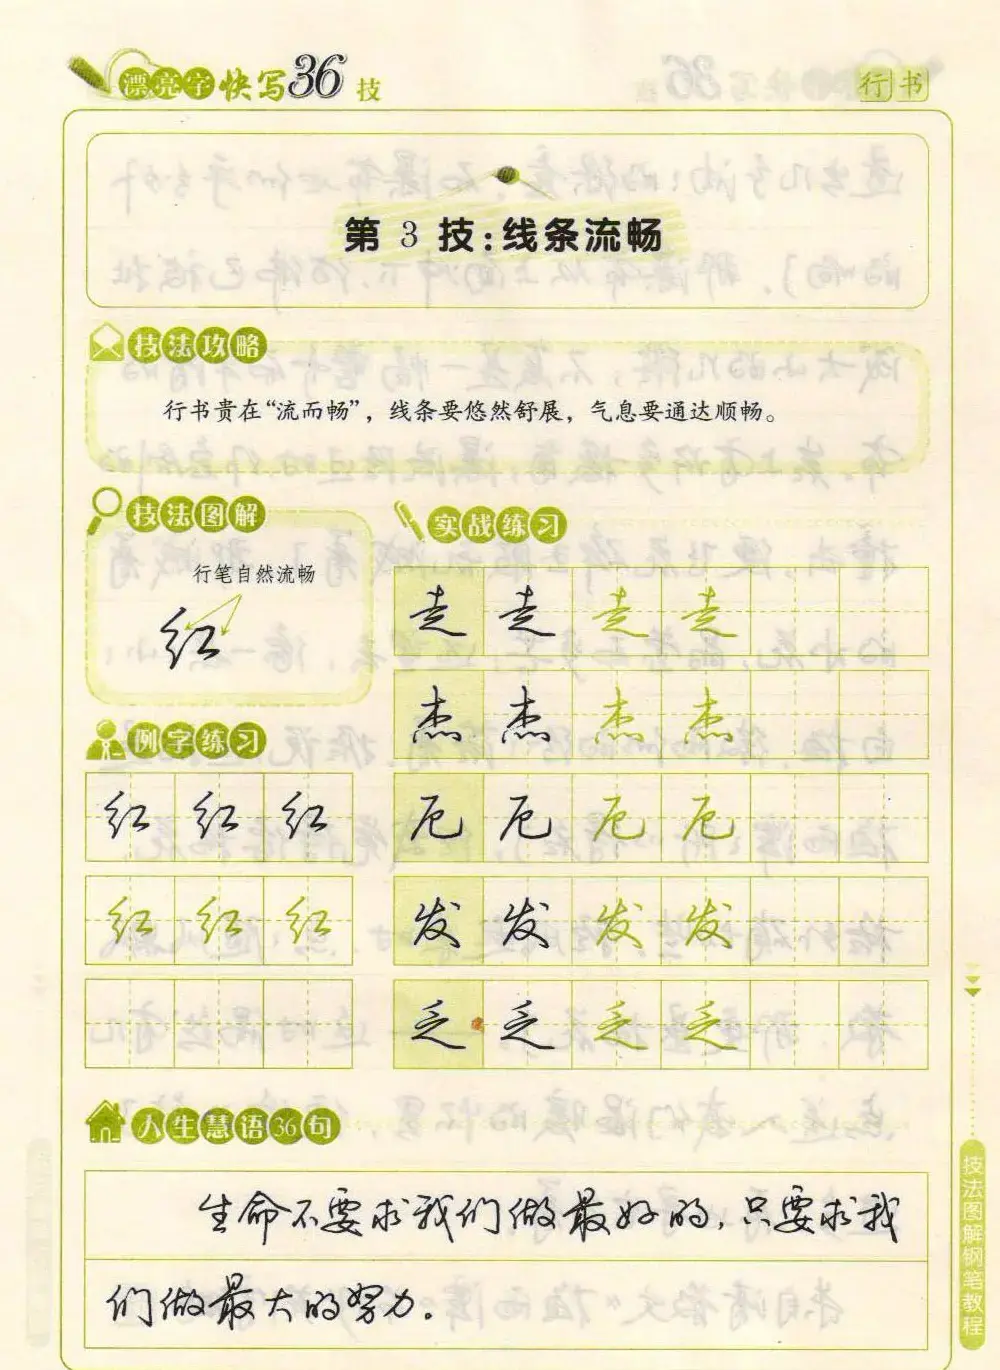 漂亮字快写36技
行书
第3技:线条流畅
技法攻略
行书贵在“流而畅”，线条要悠然舒展，气息要通达顺畅。
技法图解
行笔自然流畅
红
例字练习
红 红 红
红 红 红
实战练习
走 走 走 走
杰 杰 杰 杰
厄 厄 厄 厄
发 发 发 发
乏 乏 乏 乏
人生慧语36句
生命不要求我们做最好的，只要求我
们做最大的努力。
技法图解钢笔教程